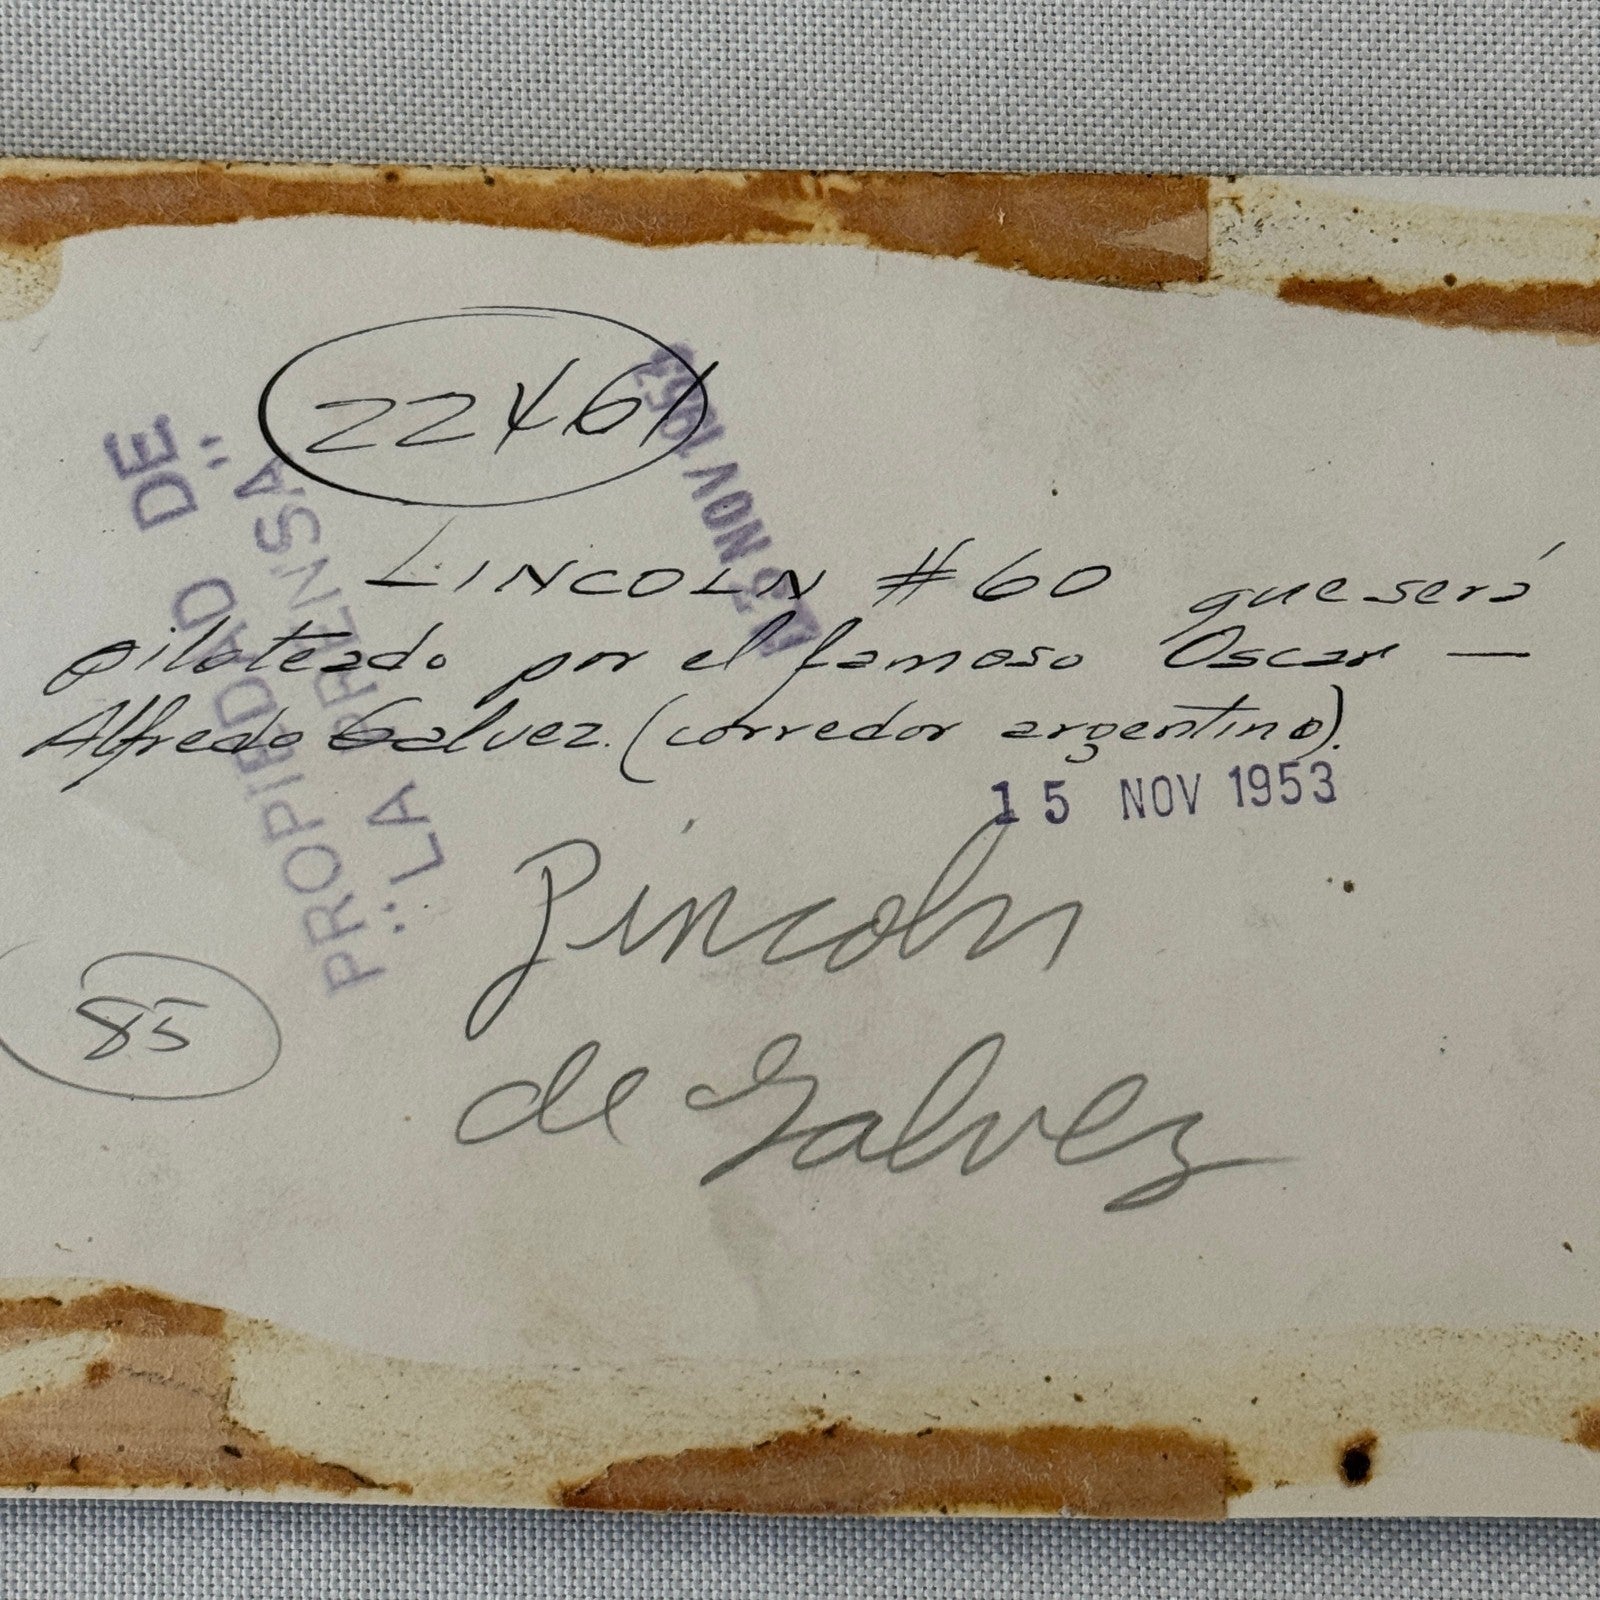 22461
PROPIEDAD DE
"LA PRENSA"
NOV 1953
LINCOLN #60 que será
piloteado por el famoso Oscar —
Alfredo Galvez. (corredor argentino).
15 NOV 1953
Lincoln
de Galvez
85